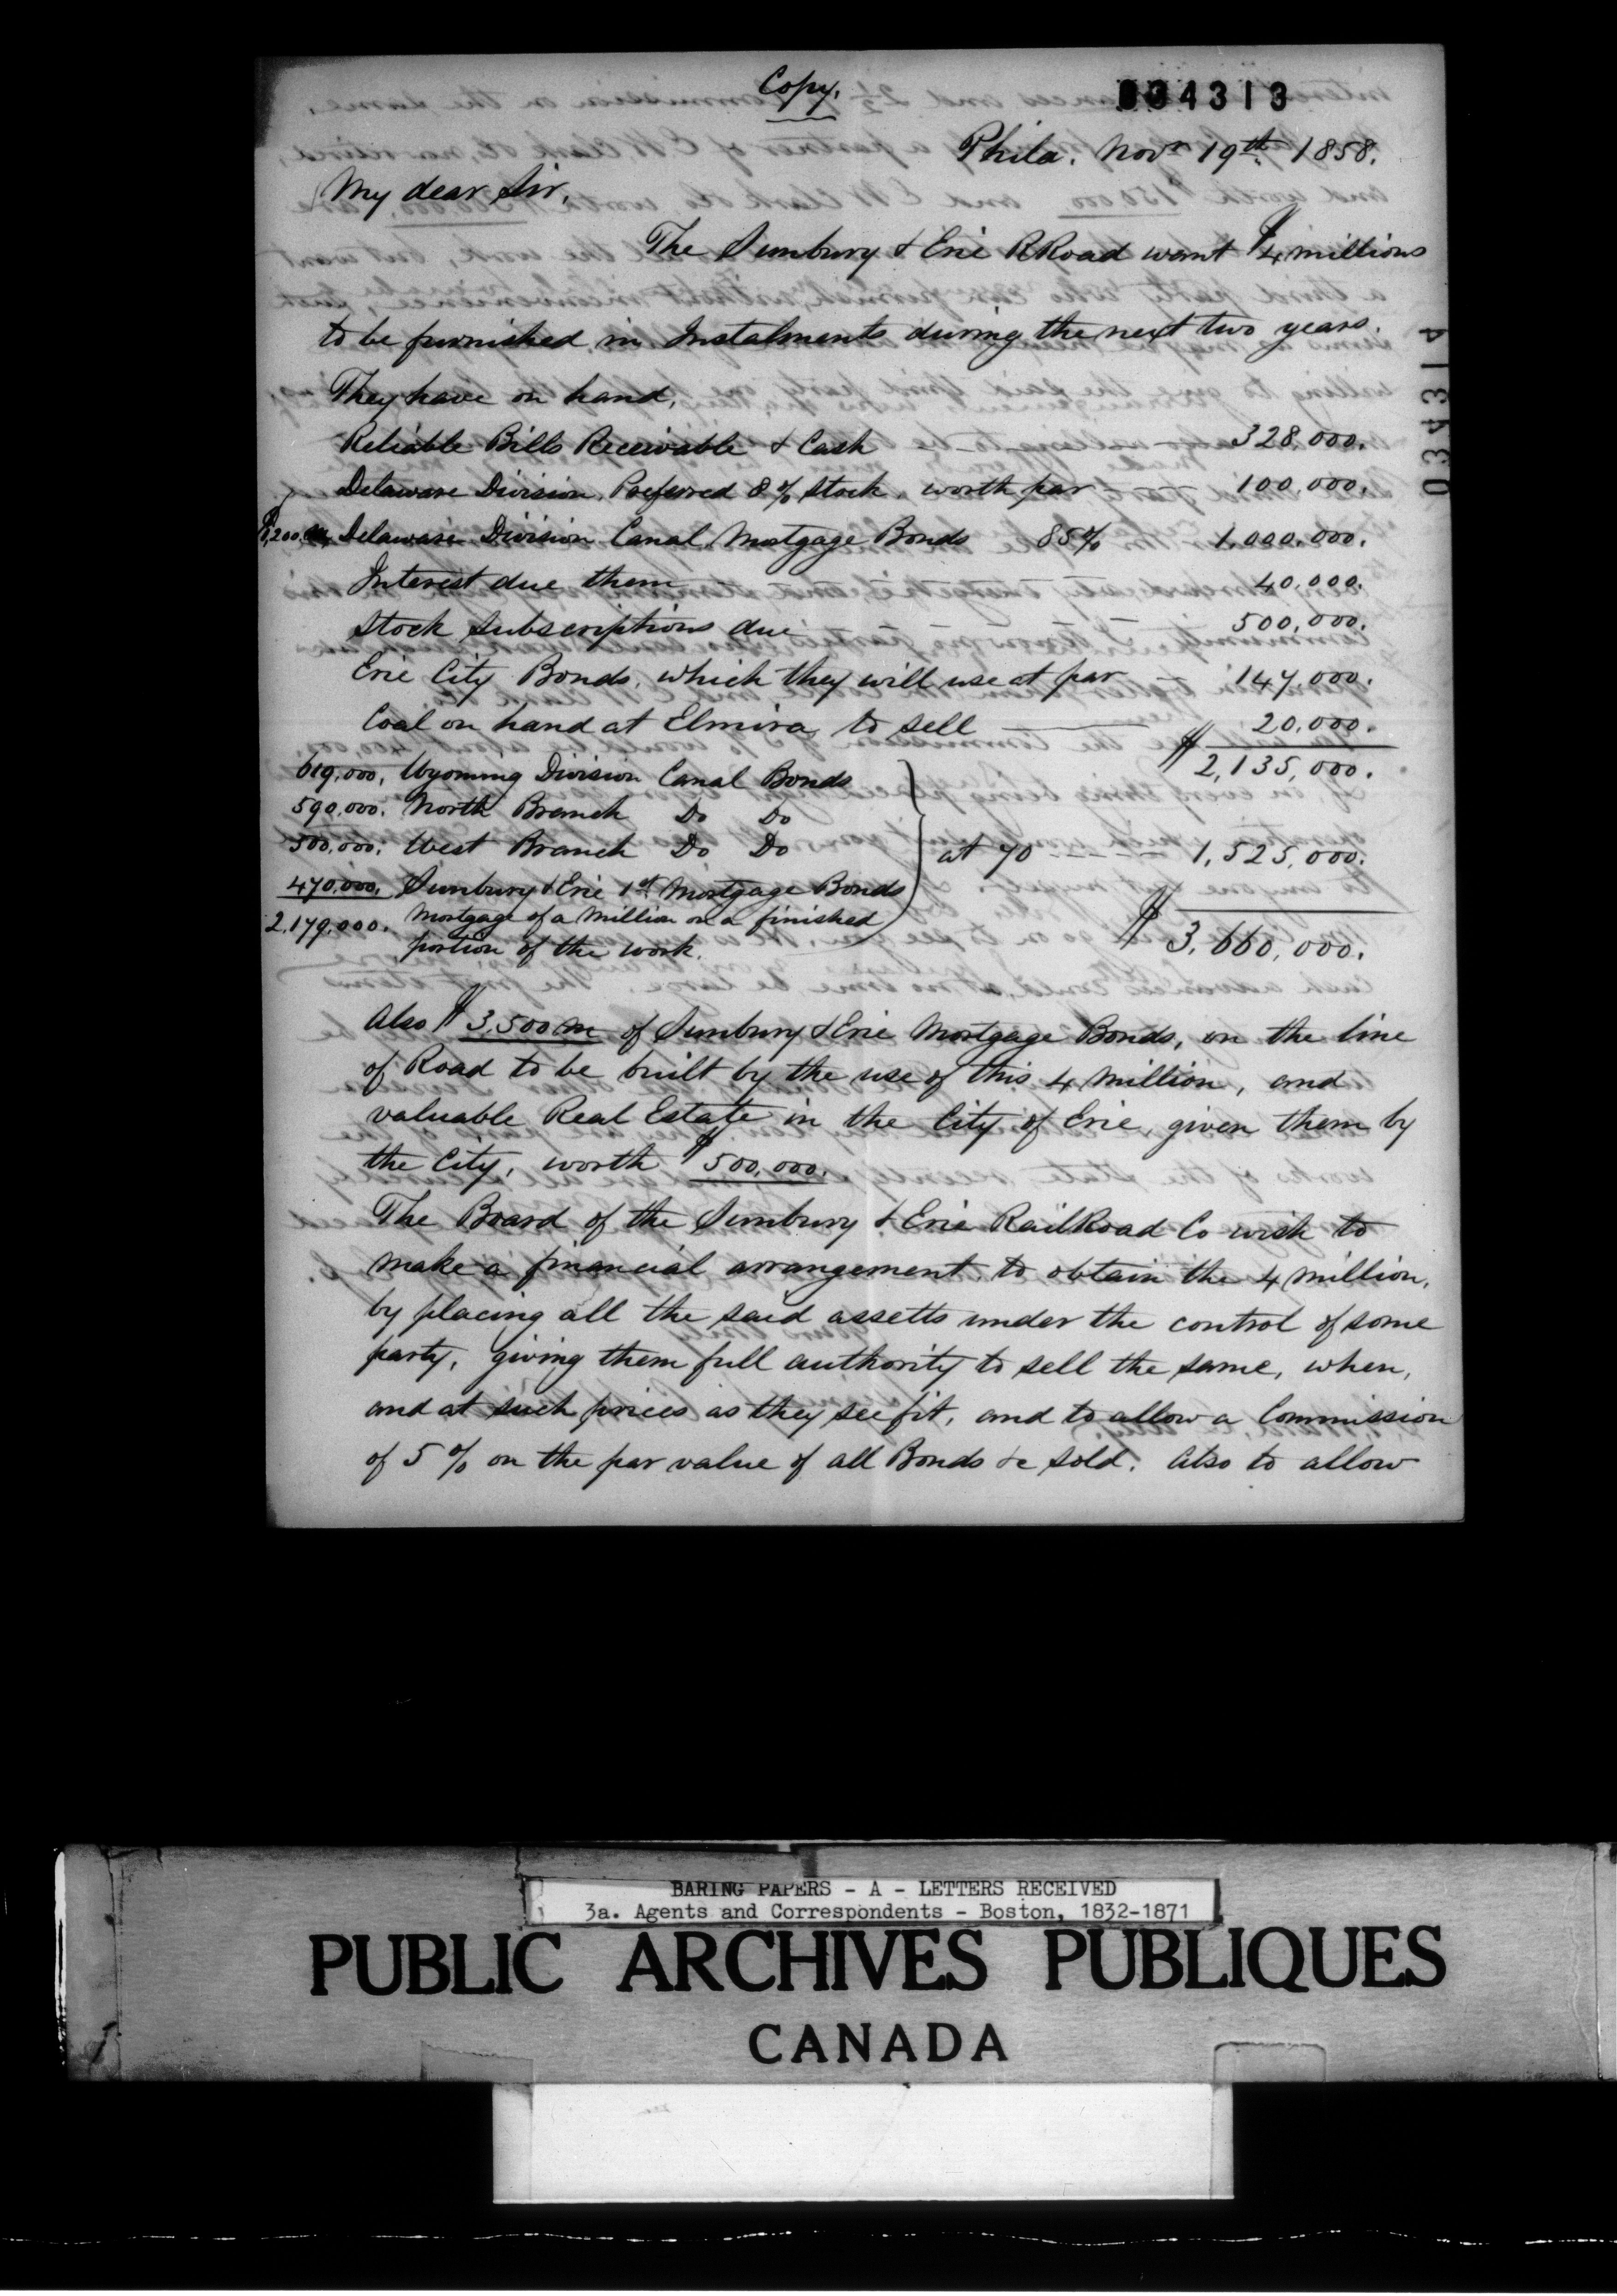 Copy.
034313
Phila. Novr 19th 1858.
My dear Sir,
The Sunbury & Erie RRoad want $4 millions
to be furnished in Instalments during the next two years.
034314
They have on hand,
Reliable Bills Receivable & Cash 328,000.
Delaware Division Preferred 8% stock, worth par — 100,000.
$1,200,m Delaware Division Canal Mortgage Bonds 85% 1,000,000.
Interest due them 40,000.
Stock Subscriptions due — — — 500,000.
Erie City Bonds, which they will use at par — 147,000.
Coal on hand at Elmira, to sell — 20,000.
$2,135,000.
619,000, Wyoming Division Canal Bonds
590,000. North Branch Do Do
500,000. West Branch Do Do
at 70 - - - - - 1,525,000.
470,000, Sunbury & Erie 1st Mortgage Bonds
2,179,000. Mortgage of a Million on a finished
portion of the work.
$3,660,000.
Also $3,500 m of Sunbury & Erie Mortgage Bonds, on the line
of Road to be built by the use of this 4 million, and
valuable Real Estate in the City of Erie, given them by
the City, worth $500,000.
The Board of the Sunbury & Erie RailRoad Co wish to
make a financial arrangement, to obtain the 4 million,
by placing all the said assetts under the control of some
party, giving them full authority to sell the same, when,
and at such prices as they see fit, and to allow a Commission
of 5% on the par value of all Bonds &c sold. Also to allow
BARING PAPERS - A - LETTERS RECEIVED
3a. Agents and Correspondents - Boston, 1832-1871
PUBLIC ARCHIVES PUBLIQUES
CANADA